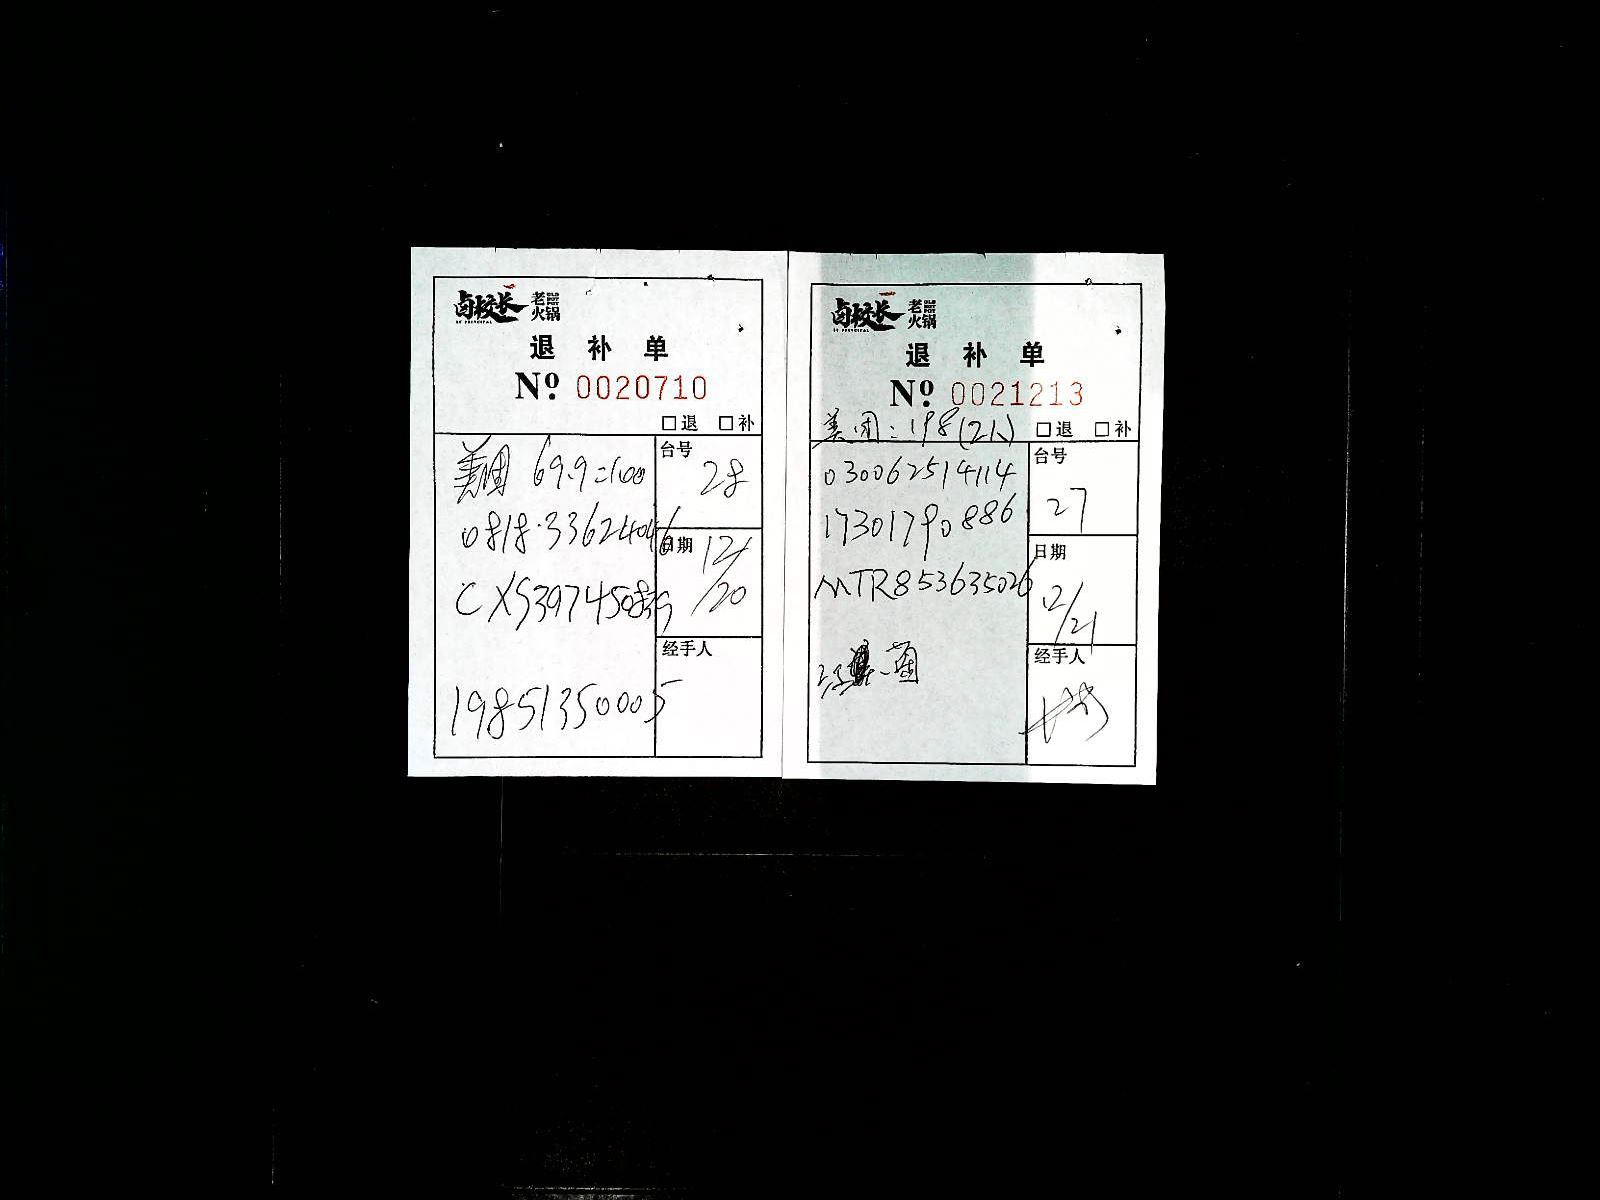 卤校长 老火锅
退补单
No. 0020710
□退 □补
美团 69.9=100
台号 28
0818.33624046
日期 12/20
CXS3974508
经手人
19851350005
卤校长 老火锅
退补单
No. 0021213
美团:198(2人) □退 □补
台号 27
030062514114
17301790886
日期 12/21
MTR853635026
经手人